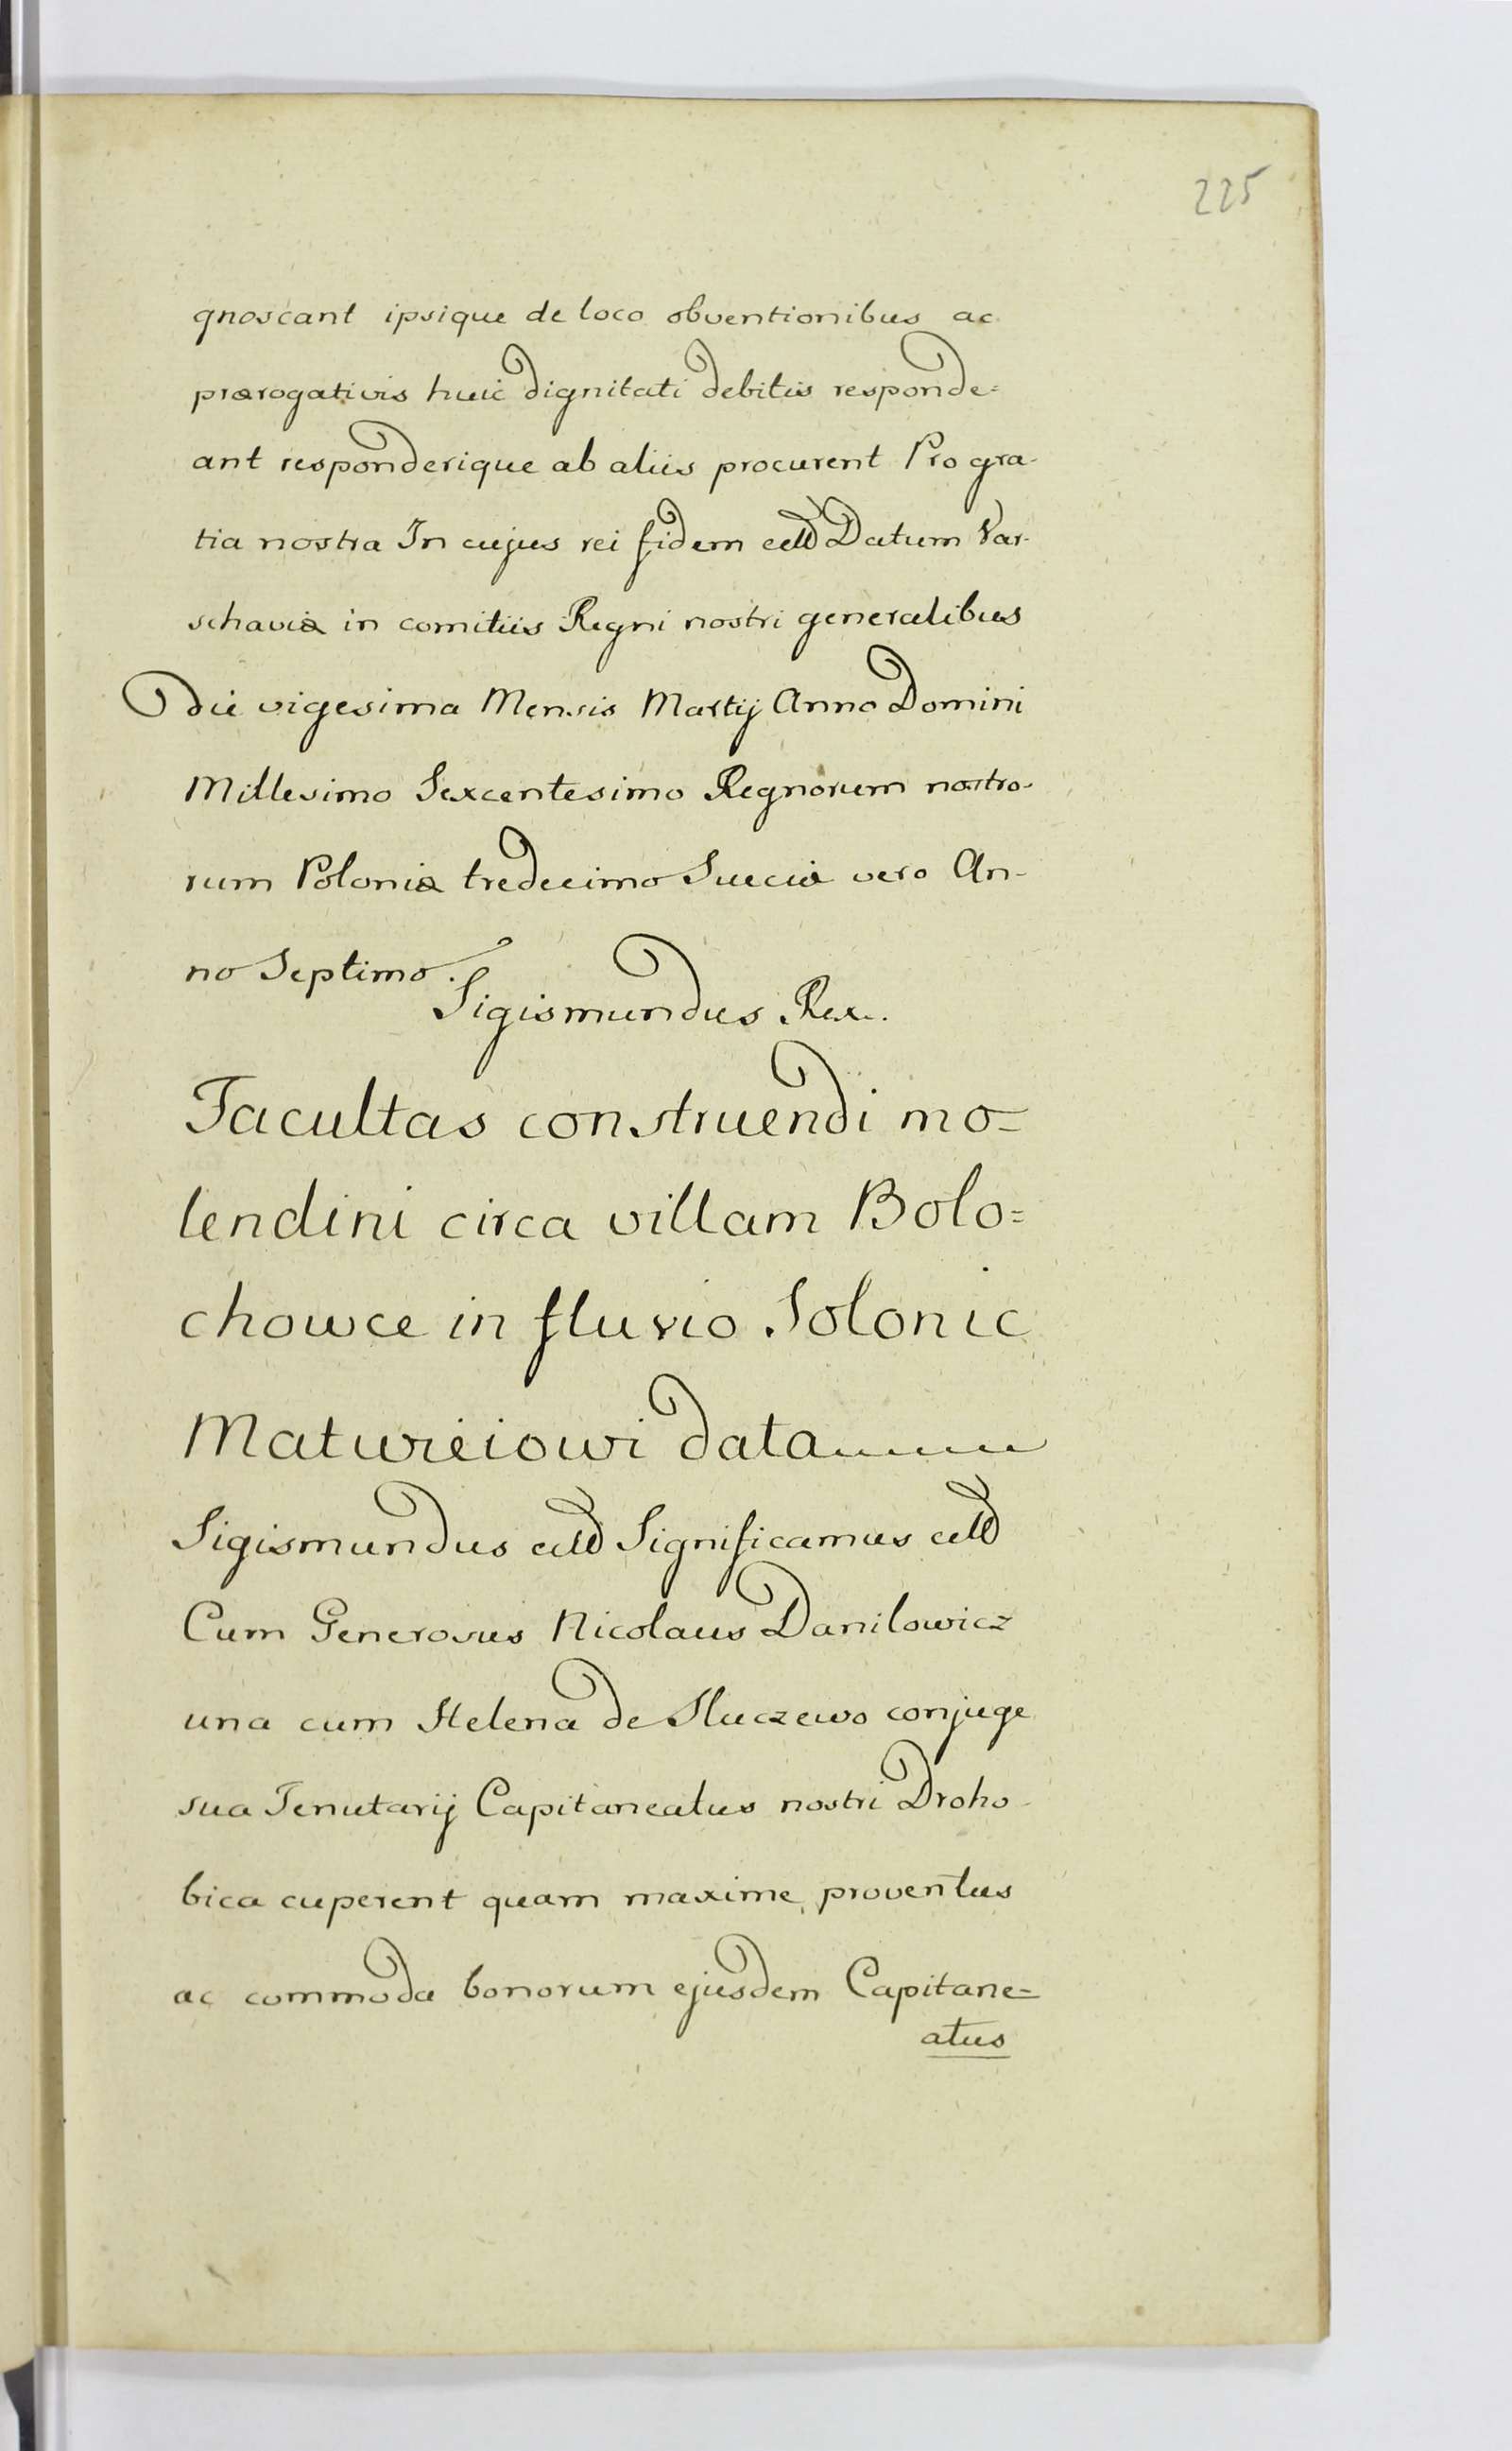 225
gnoscant ipsique de loco obventionibus ac
prærogativis huic dignitati debitis responde=
ant responderique ab aliis procurent Pro gra-
tia nostra In cujus rei fidem etts Datum Var-
schaviæ in comitiis Regni nostri generalibus
Die vigesima Mensis Martij Anno Domini
Millesimo Sexcentesimo Regnorum nostro-
rum Poloniæ tredecimo Sueciæ vero An-
no Septimo.
Sigismundus Rex.
Facultas construendi mo=
lendini circa villam Bolo=
chowce in fluvio Solonic
Matwieiowi data
Sigismundus etts Significamus etts
Cum Generosus Nicolaus Danilowicz
una cum Helena de Hluczewo conjuge
sua Tenutarij Capitaneatus nostri Droho-
bica cuperent quam maxime proventus
ac commoda bonorum ejusdem Capitane=
atus